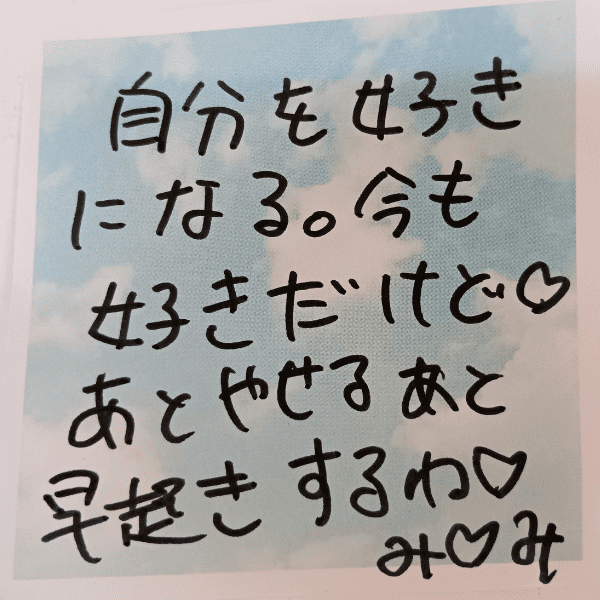 自分を好き
になる。今も
好きだけど♡
あとやせるあと
早起きするわ♡
み♡み